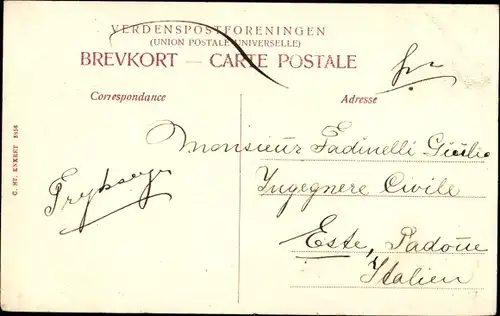 VERDENSPOSTFORENINGEN
(UNION POSTALE UNIVERSELLE)
BREVKORT — CARTE POSTALE
Correspondance
Adresse
Monsieur Fadinelli Giulio
Ingegnere Civile
Este, Padoue
Italien